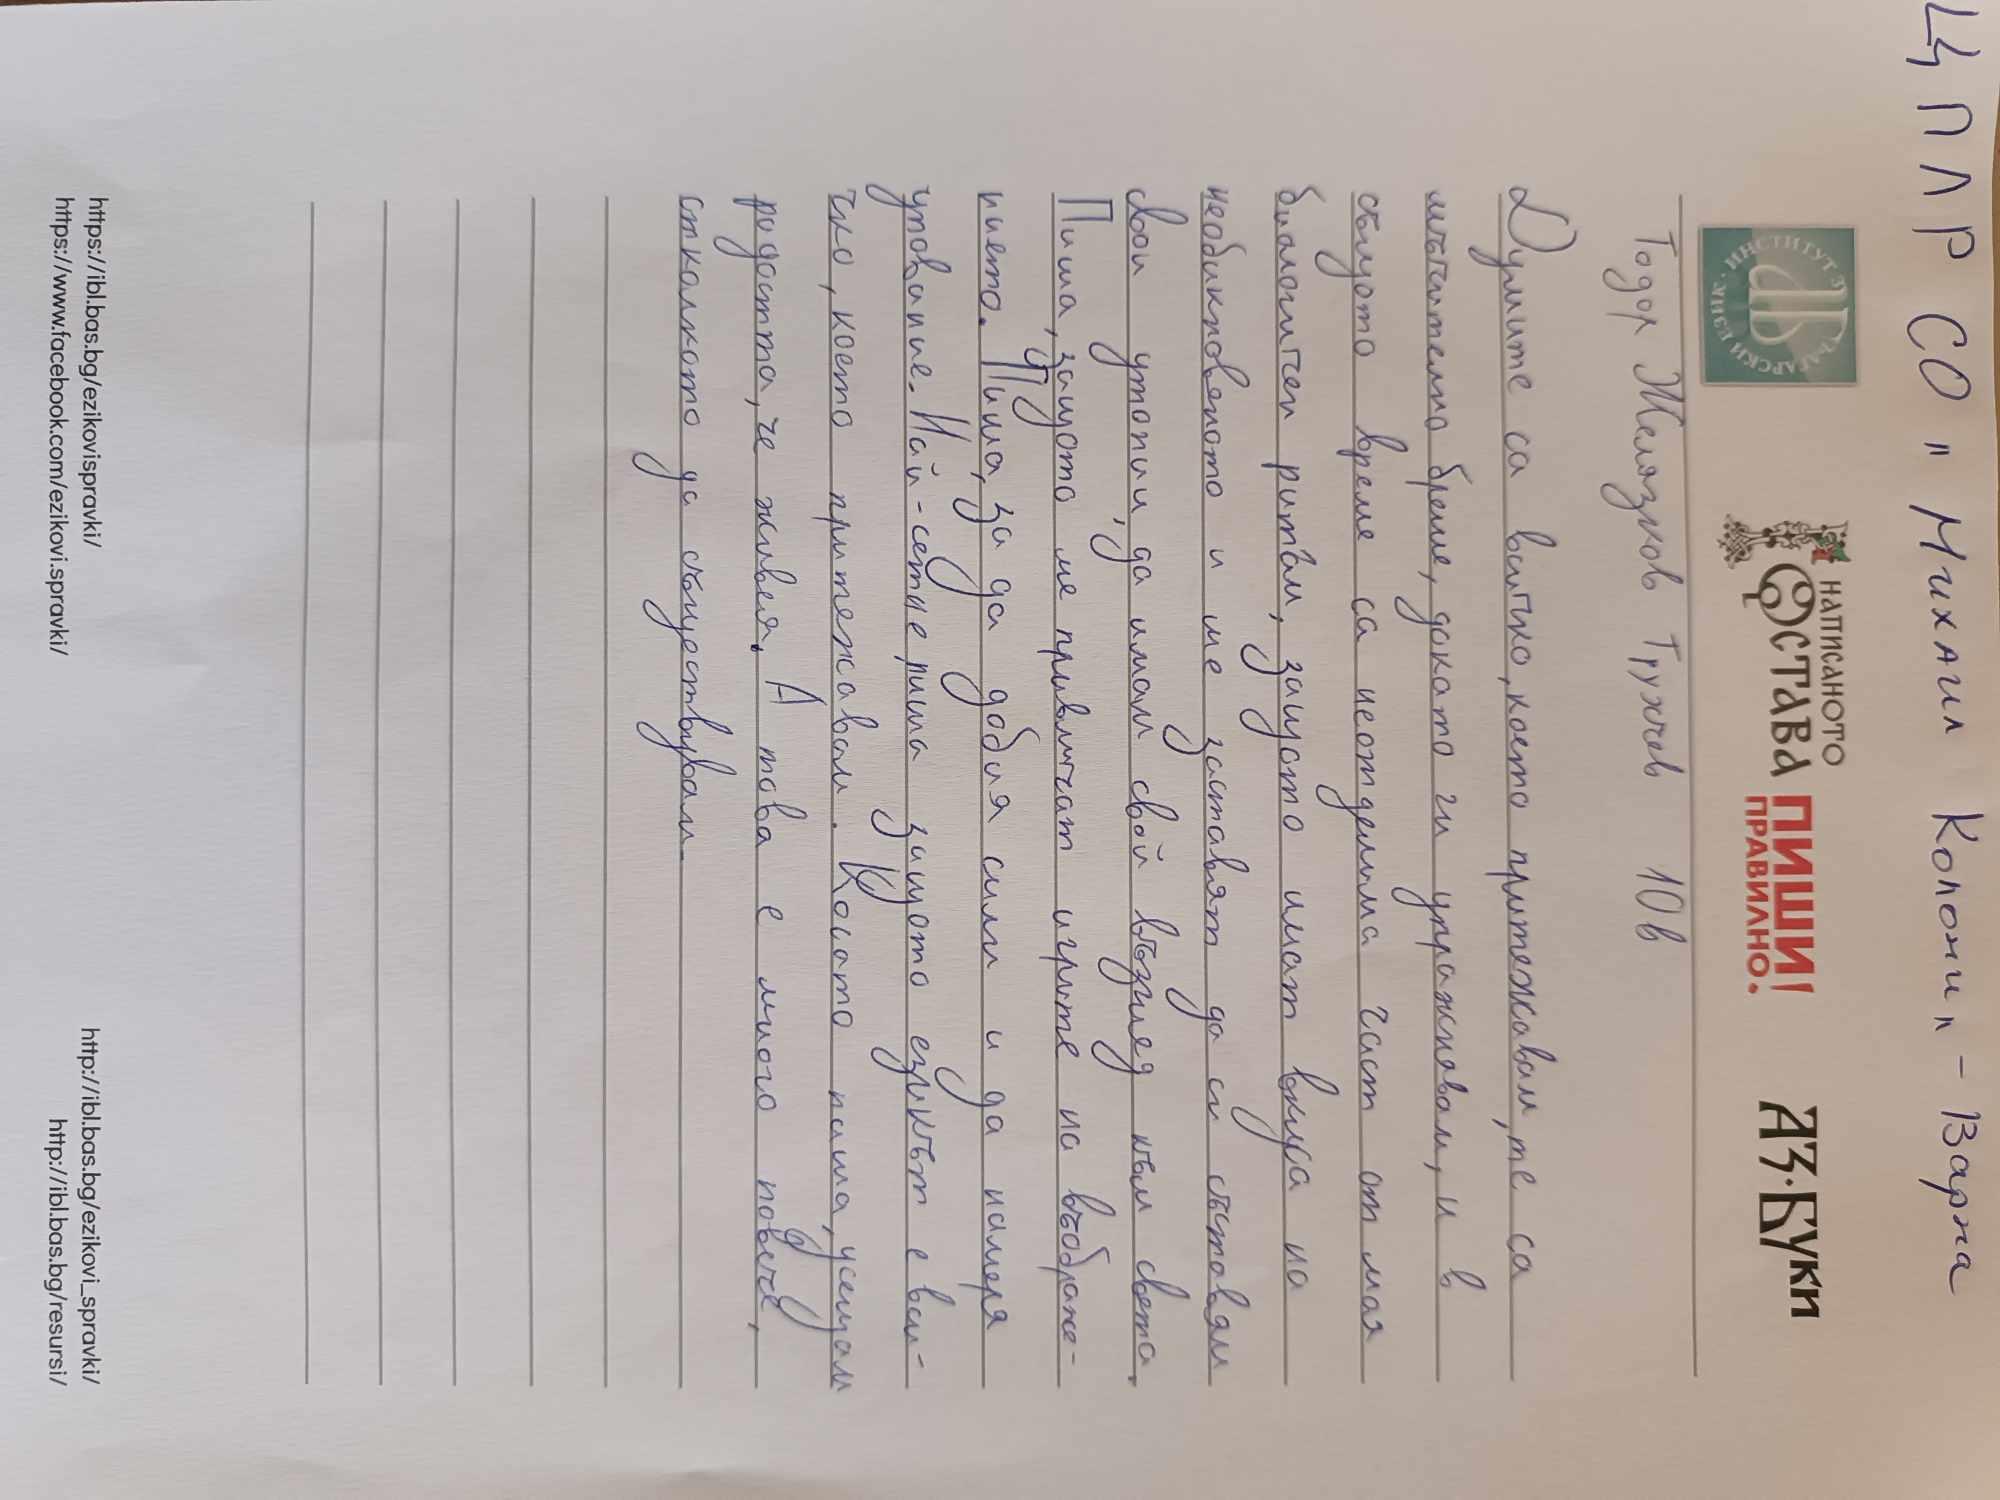 ЦПЛР СО "Михаил Колони" - Варна
ИНСТИТУТ ЗА БЪЛГАРСКИ ЕЗИК
НАПИСАНОТО
ОСТАВА
ПИШИ
ПРАВИЛНО!
АЗ·БУКИ
Тодор Желязков Тухчев 10в
Думите са всичко, което притежавам, те са
мъчително бреме, докато ги упражнявам, и в
същото време са неотделима част от моя
биологичен ритъм, защото имат вкуса на
необикновеното и ме заставят да си съставям
свои утопии, да имам свой възглед към света.
Пиша, защото ме привличат игрите на въображе-
нието. Пиша, за да добия сили и да намеря
упование. Най-сетне, пиша защото езикът е вси-
чко, което притежавам. Когато пиша, усещам
радостта, че живея. А това е много повече,
отколкото да съществувам.
https://ibl.bas.bg/ezikovispravki/
https://www.facebook.com/ezikovi.spravki/
http://ibl.bas.bg/ezikovi_spravki/
http://ibl.bas.bg/resursi/